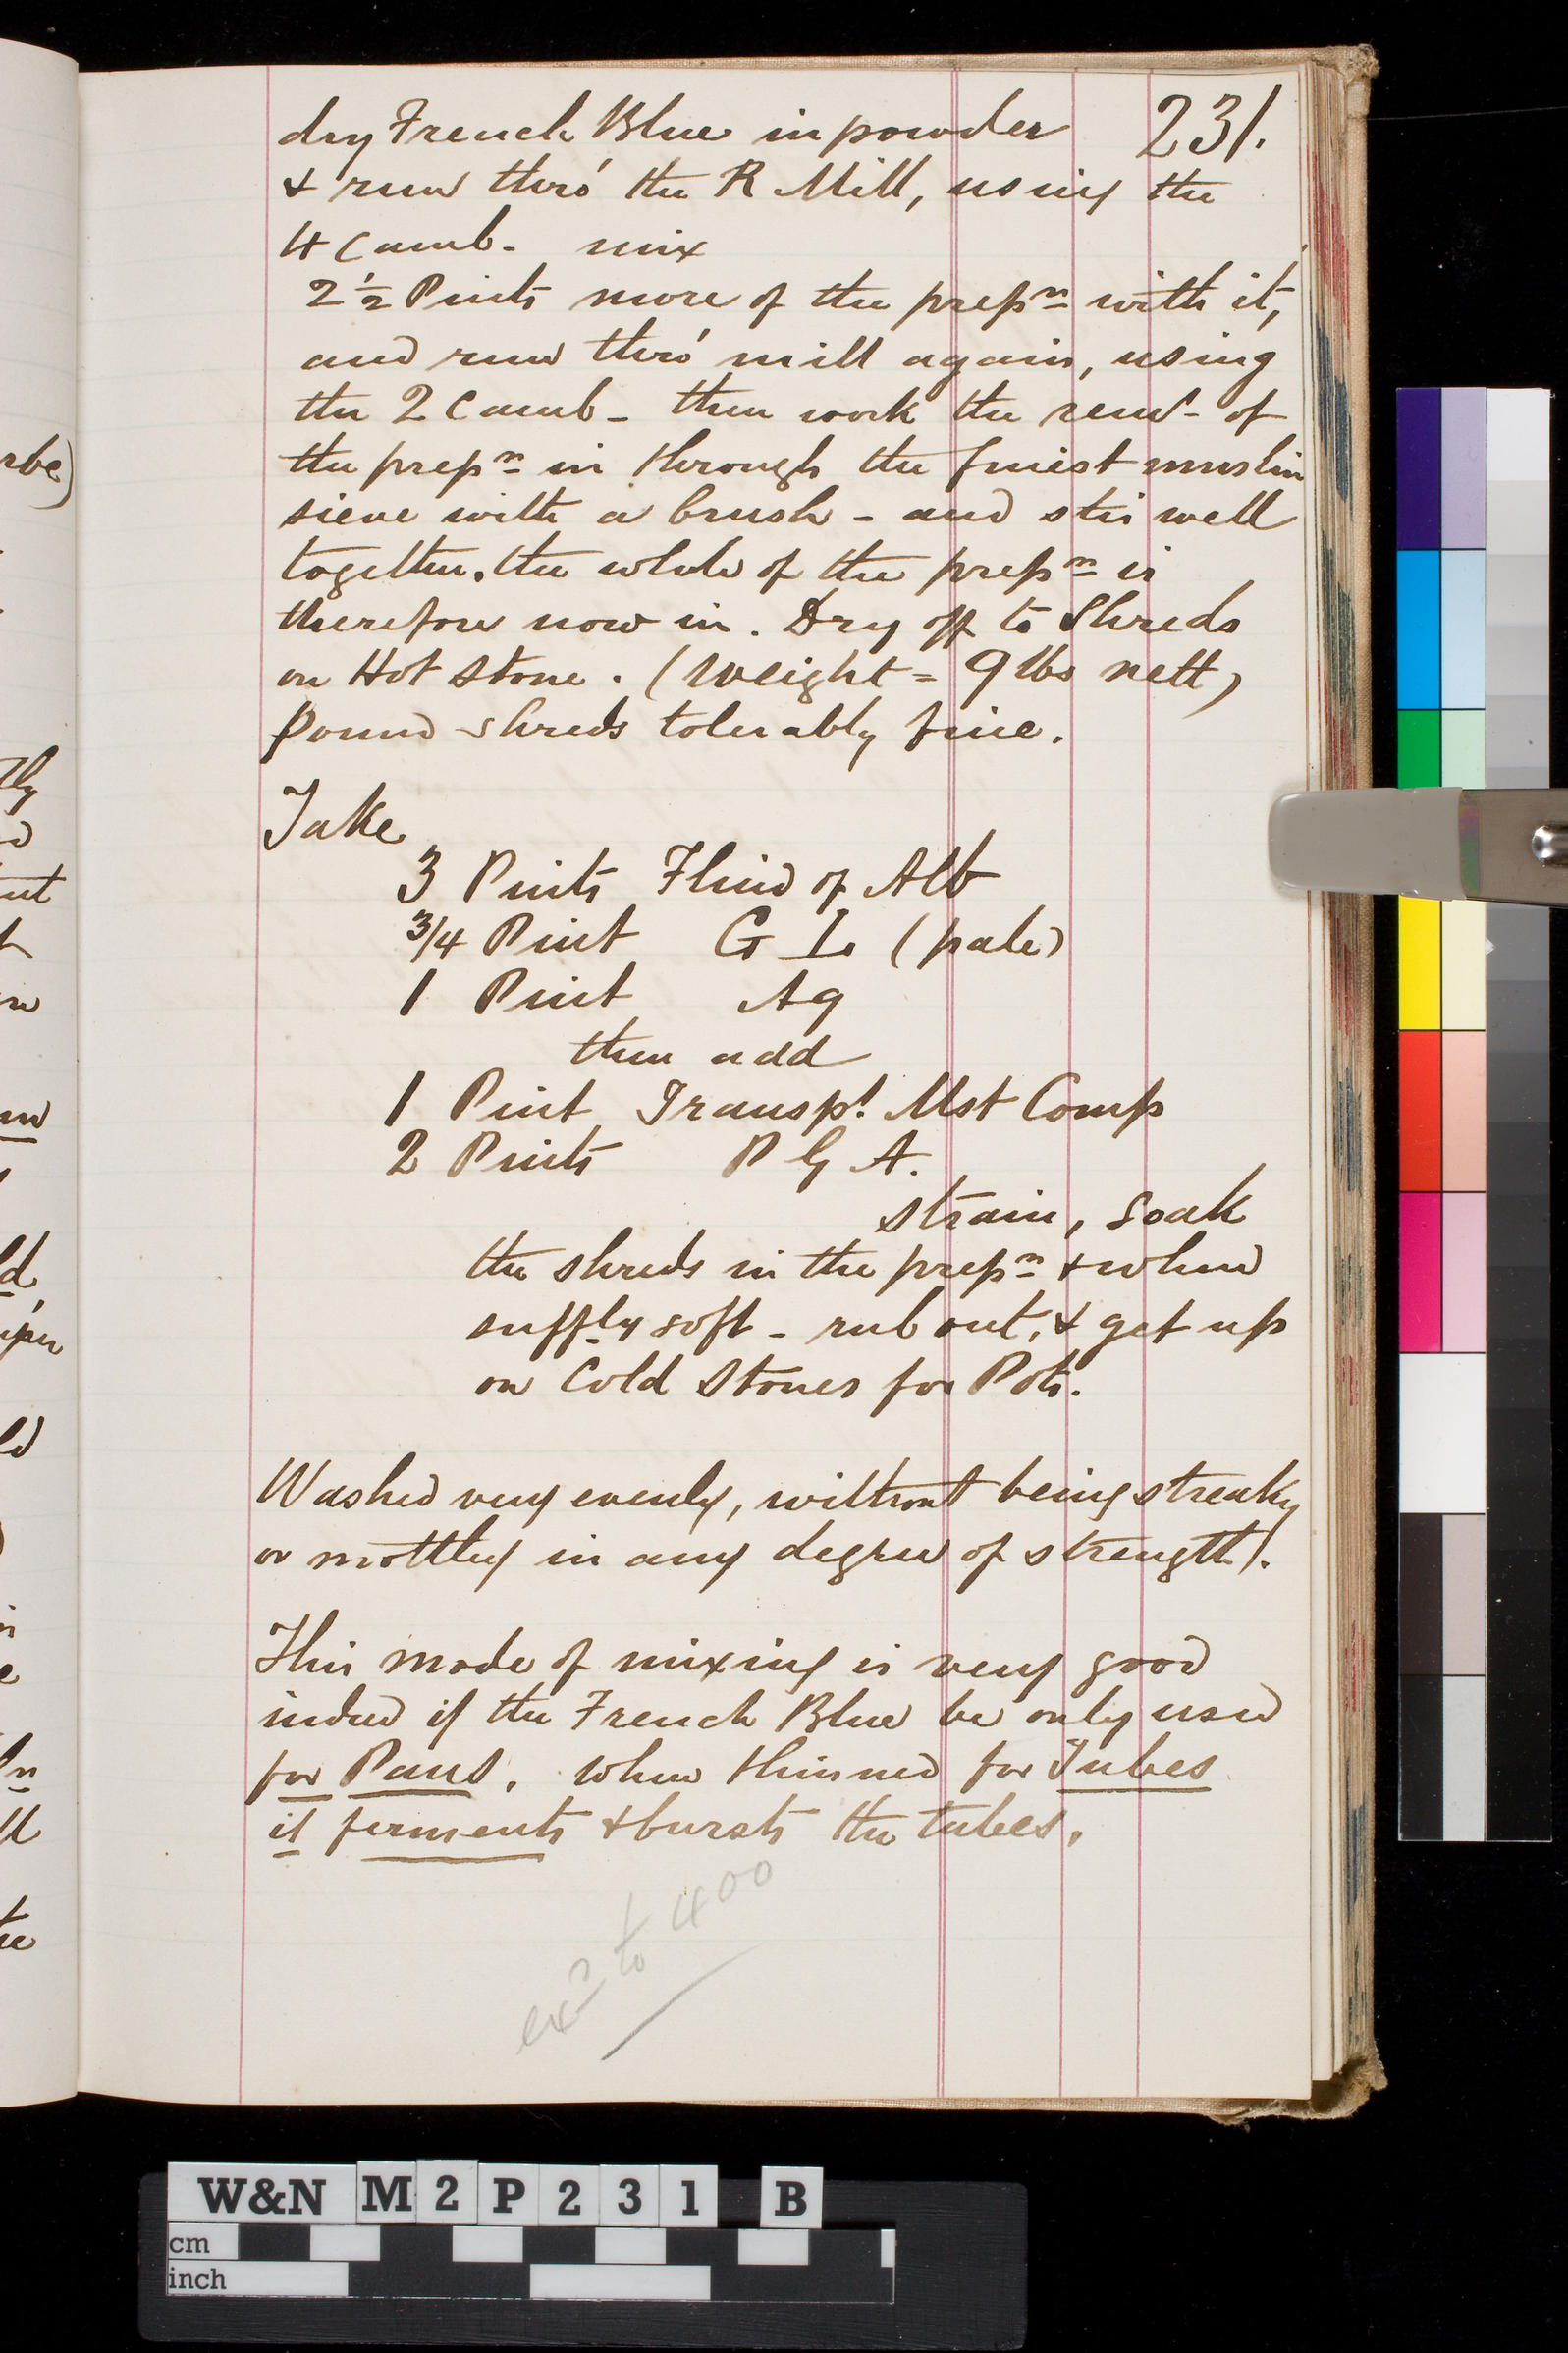 231.
dry French Blue in powder
& run thro' the R Mill, using the
4 Camb - mix
2 1/2 Pints more of the prepn with it,
and run thro' mill again, using
the 2 Camb - then work the remr of
the prepn in through the finest muslin
sieve with a brush - and stir well
together. the whole of the prepn is
therefore now in. Dry off to Shreds
on Hot Stone. (Weight = 9 lbs nett)
Pound shreds tolerably fine.
Take
3 Pints Fluid of Alb
3/4 Pint G I. (pale)
1 Pint Aq
then add
1 Pint Transpt Mst Comp
2 Pints P G A.
strain, soak
the shreds in the prepn & when
suffly soft - rub out, & get up
on Cold Stones for Pots.
Washed very evenly, without being streaky
or mottley in any degree of strength).
This mode of mixing is very good
indeed if the French Blue be only used
for Pans. When thinned for Tubes
it ferments & bursts the tubes.
exd to 400
rbe)
W&N M2P231 B
cm
inch